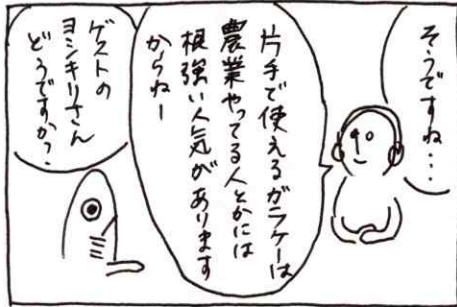 そうですね…
片手で使えるガラケーは
農業やってる人とかには
根強い人気があります
からねー
ゲストの
ヨシキリさん
どうですか?